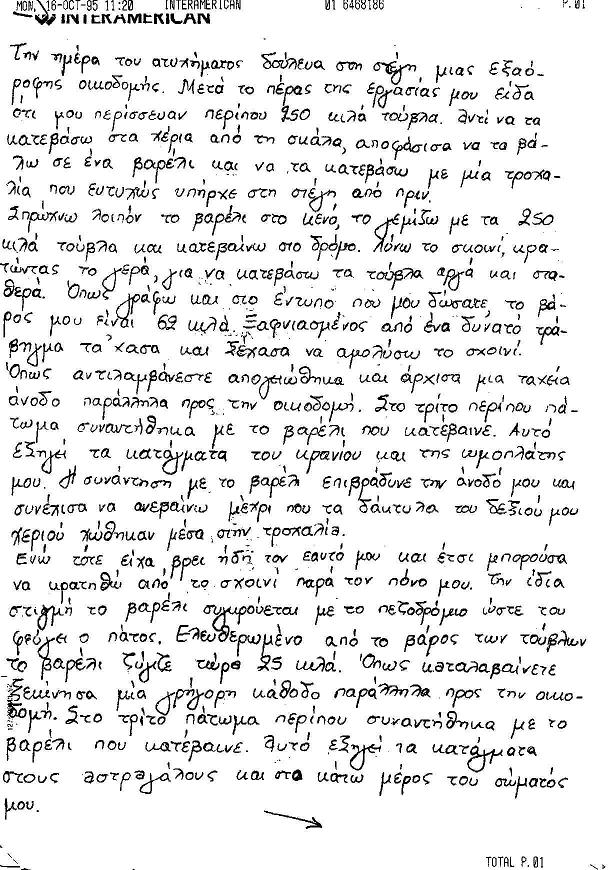 MON, 16-OCT-95 11:20 INTERAMERICAN 01 6468186 P.01
INTERAMERICAN
Την ημέρα του ατυχήματος δούλευα στη στέγη μιας εξαό-
ροφης οικοδομής. Μετά το πέρας της εργασίας μου είδα
ότι μου περίσσευαν περίπου 250 κιλά τούβλα. Αντί να τα
κατεβάσω στα χέρια από τη σκάλα, αποφάσισα να τα βά-
λω σε ένα βαρέλι και να τα κατεβάσω με μία τροχα-
λία που ευτυχώς υπήρχε στη στέγη από πριν.
Σπρώχνω λοιπόν το βαρέλι στο κενό, το γεμίζω με τα 250
κιλά τούβλα και κατεβαίνω στο δρόμο. Λύνω το σκοινί, κρα-
τώντας το γερά, για να κατεβάσω τα τούβλα αργά και στα-
θερά. Όπως γράφω και στο έντυπο που μου δώσατε, το βά-
ρος μου είναι 62 κιλά. Ξαφνιασμένος από ένα δυνατό τρά-
βηγμα τα χασα και ξέχασα να αμολύσω το σχοινί.
Όπως αντιλαμβάνεστε απογειώθηκα και άρχισα μια ταχεία
άνοδο παράλληλα προς την οικοδομή. Στο τρίτο περίπου πά-
τωμα συναντήθηκα με το βαρέλι που κατέβαινε. Αυτό
εξηγεί τα κατάγματα του κρανίου και της ωμοπλάτης
μου. Η συνάντηση με το βαρέλι επιβράδυνε την άνοδό μου και
συνέχισα να ανεβαίνω μέχρι που τα δάκτυλα του δεξιού μου
χεριού χώθηκαν μέσα στην τροχαλία.
Ενώ τότε είχα βρει ήδη τον εαυτό μου και έτσι μπορούσα
να κρατηθώ από το σχοινί παρά τον πόνο μου. Την ίδια
στιγμή το βαρέλι συγκρούεται με το πεζοδρόμιο ώστε του
φεύγει ο πάτος. Ελευθερωμένο από το βάρος των τούβλων
το βαρέλι ζύγιζε τώρα 25 κιλά. Όπως καταλαβαίνετε
ξεκίνησα μία γρήγορη κάθοδο παράλληλα προς την οικο-
δομή. Στο τρίτο πάτωμα περίπου συναντήθηκα με το
βαρέλι που κατέβαινε. Αυτό εξηγεί τα κατάγματα
στους αστραγάλους και στο κάτω μέρος του σώματός
μου.
TOTAL P.01